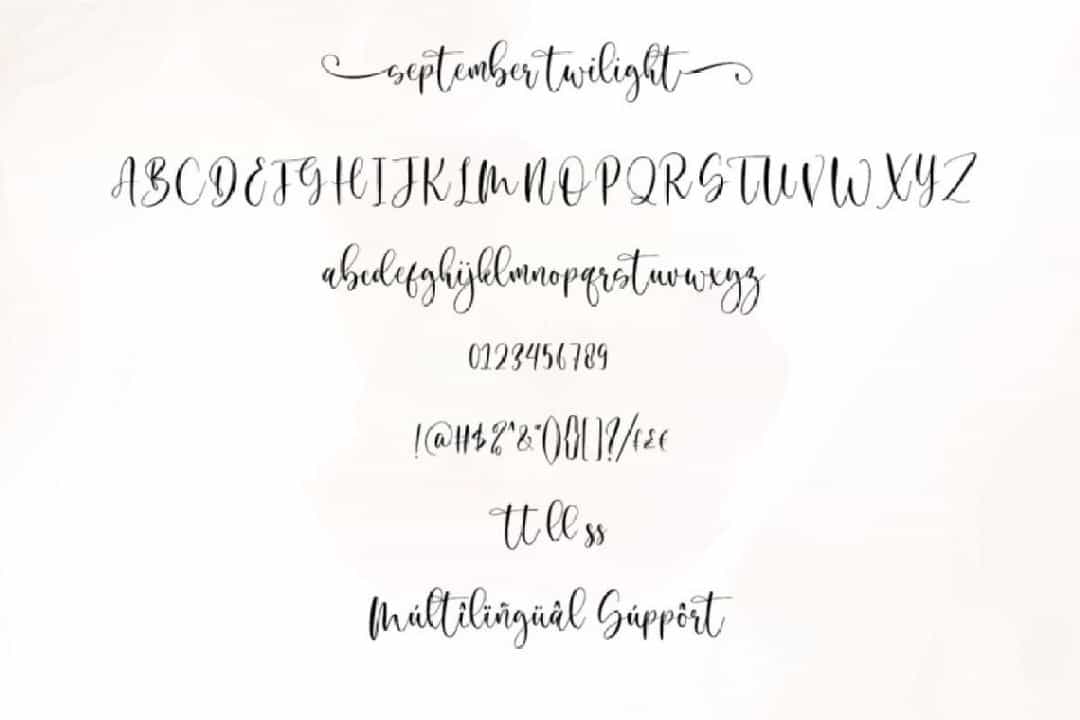 september twilight
ABCDEFGHIJKLMNOPQRSTUVWXYZ
abcdefghijklmnopqrstuvwxyz
0123456789
!@#$%^&*(){}[]?/¢£€
tt ll ss
Múltîlïñgüâl Súppôrt